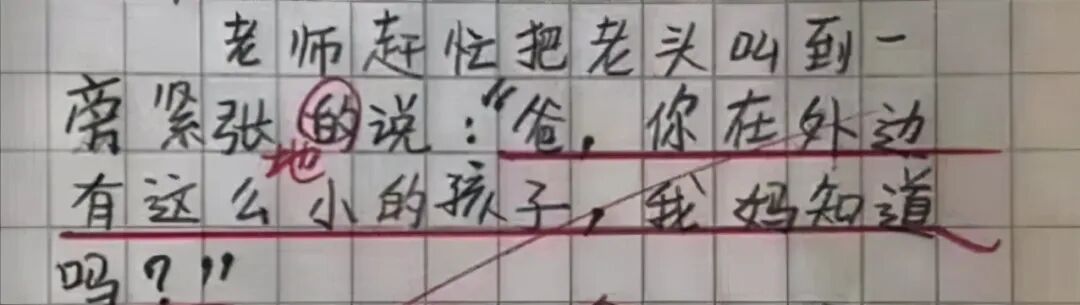 老师赶忙把老头叫到一
旁紧张的说：“爸，你在外边
地
有这么小的孩子，我妈知道
吗？”